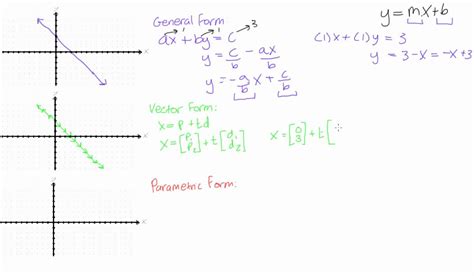 General Form
ax + by = c
y = c/b - ax/b
y = -a/b x + c/b
1
1
3
y = mx + b
(1)x + (1)y = 3
y = 3 - x = -x + 3
Vector Form:
x = p + td
x = [p₁ p₂] + t [d₁ d₂]
x = [0 3] + t [
Parametric Form:
x
x
x